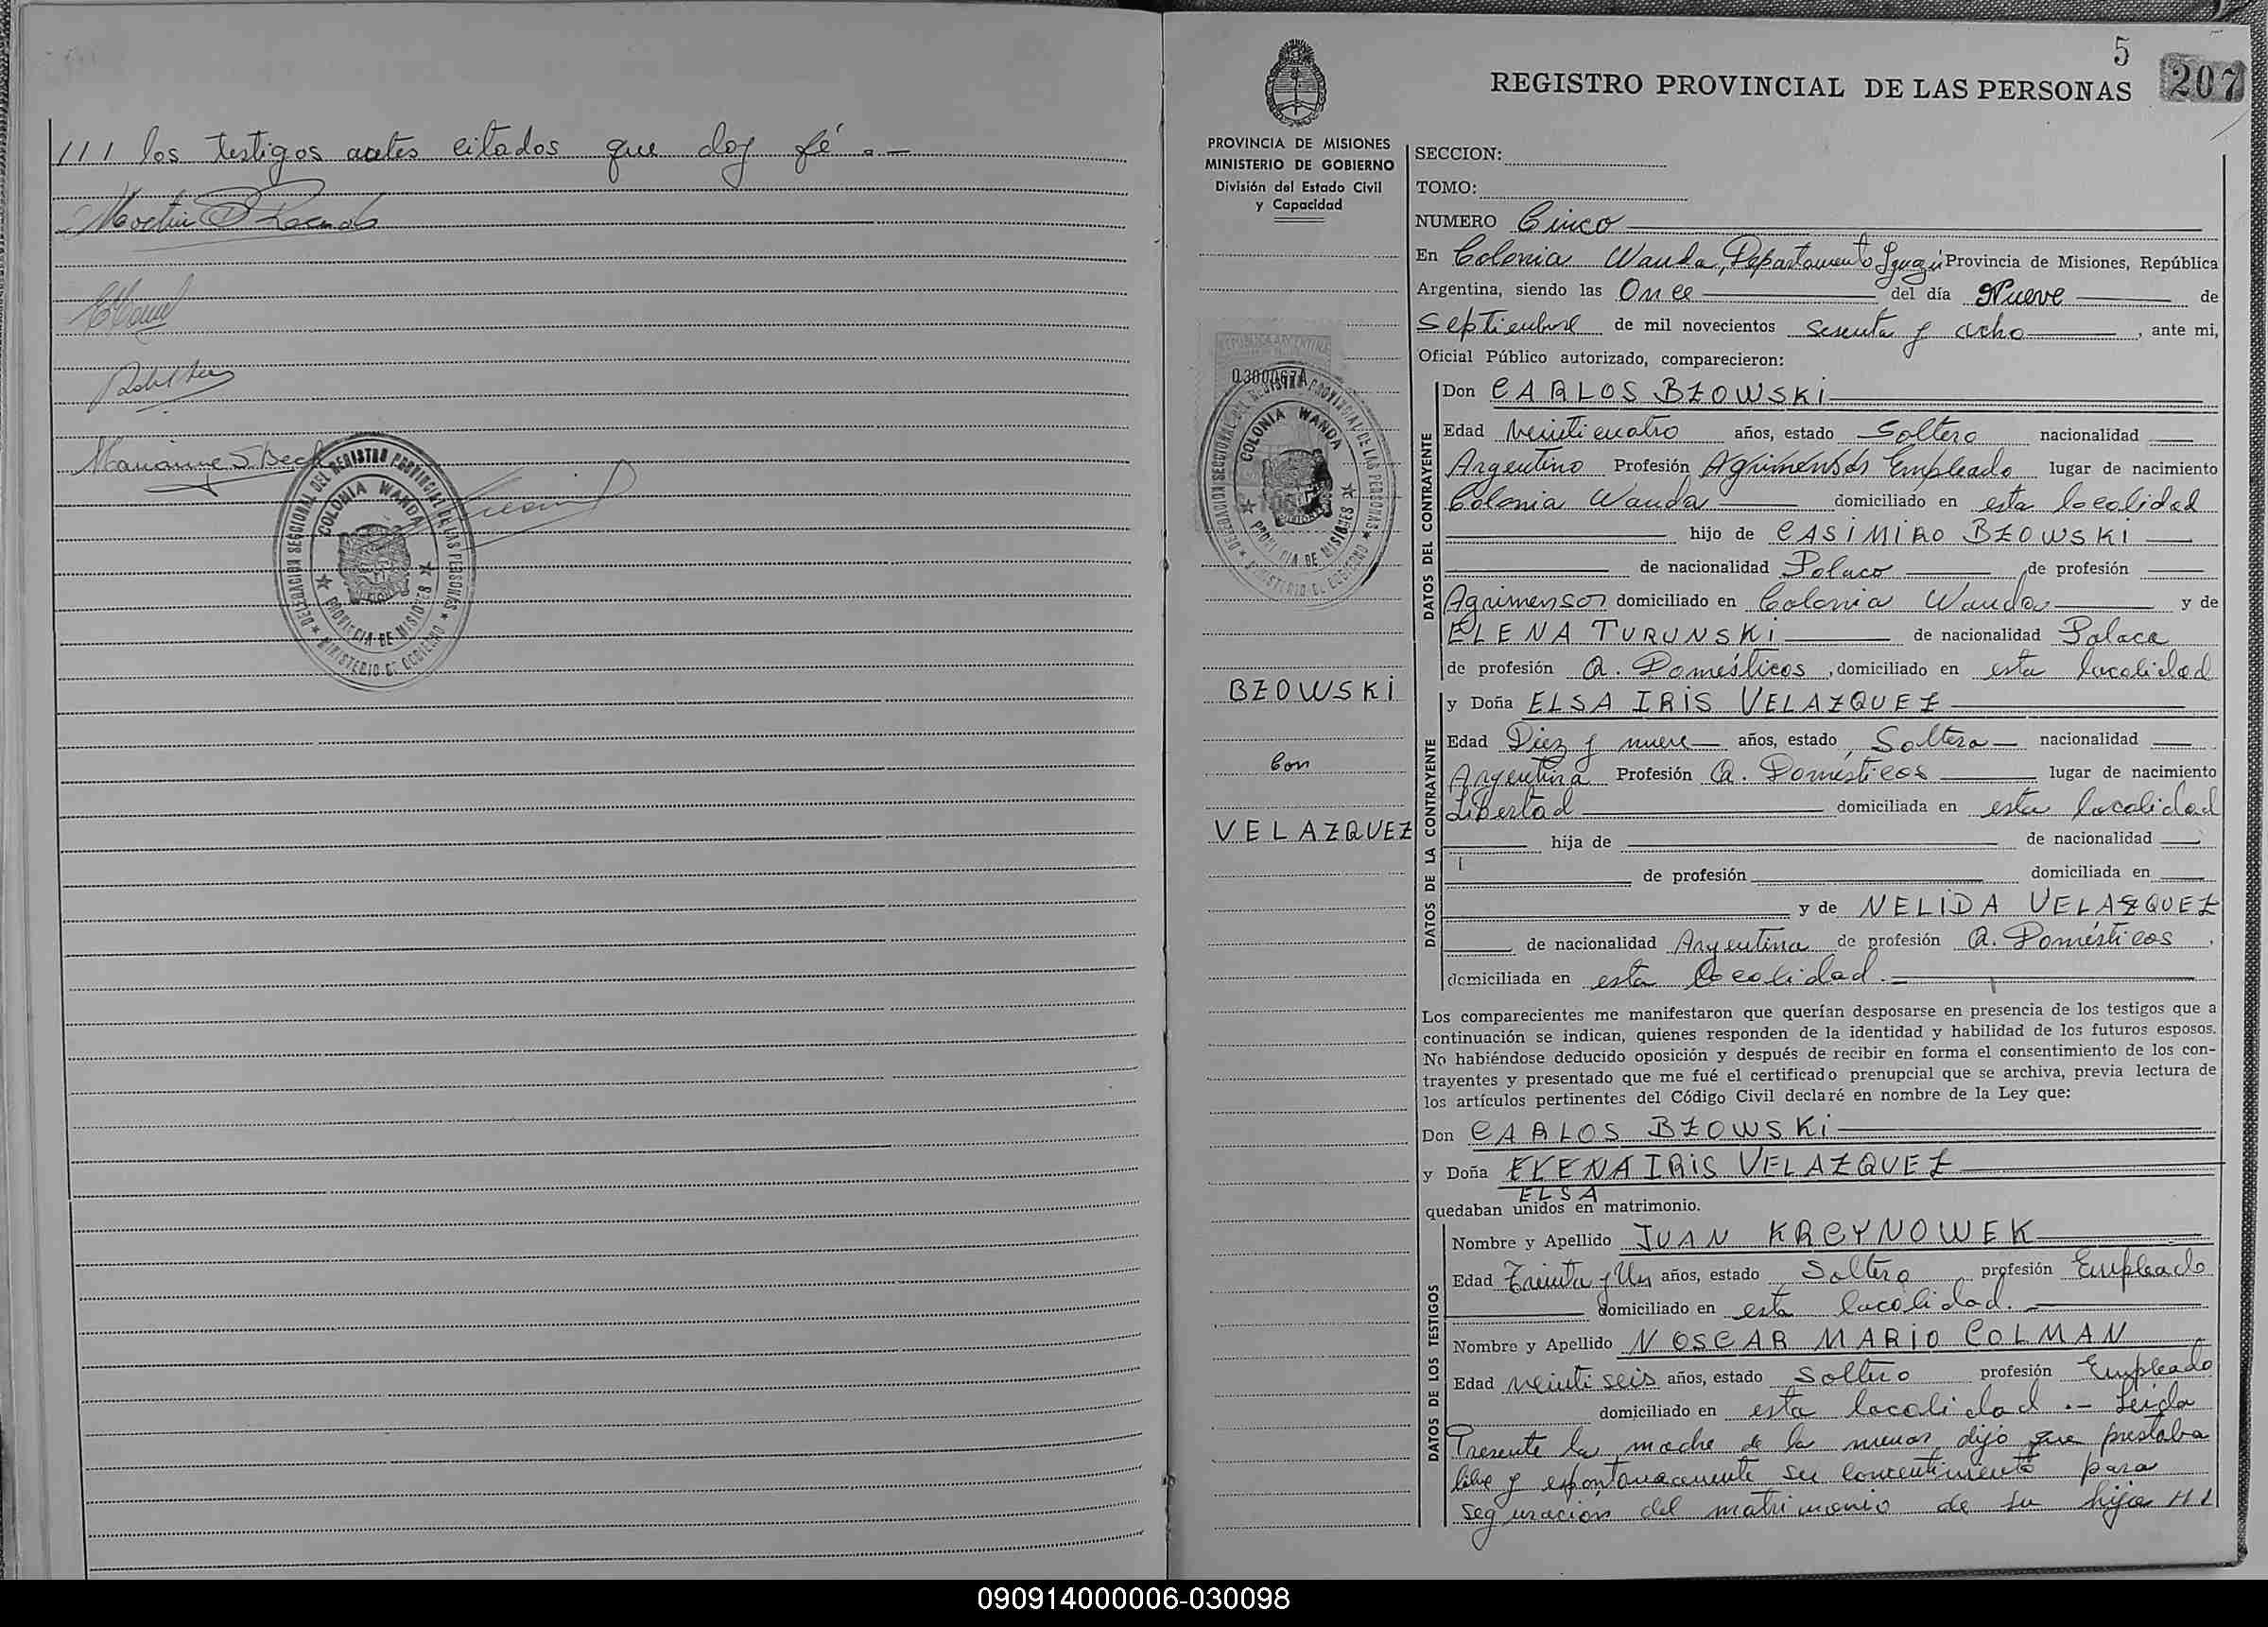 / / / los testigos antes citados que doy fé . —
Marianne S. Beck
DELEGACION SECCIONAL DEL REGISTRO PROVINCIAL DE LAS PERSONAS
COLONIA WANDA
PROVINCIA DE MISIONES
MINISTERIO DE GOBIERNO
5
207
REGISTRO PROVINCIAL DE LAS PERSONAS
PROVINCIA DE MISIONES
MINISTERIO DE GOBIERNO
División del Estado Civil
y Capacidad
REPUBLICA ARGENTINA
DELEGACION SECCIONAL DEL REGISTRO PROVINCIAL DE LAS PERSONAS
COLONIA WANDA
PROVINCIA DE MISIONES
MINISTERIO DE GOBIERNO
BZOWSKI
Con
VELAZQUEZ
SECCION:
TOMO:
NUMERO Cinco
En Colonia Wanda, Departamento Iguazú Provincia de Misiones, República
Argentina, siendo las Once del día Nueve de
Septiembre de mil novecientos sesenta y ocho, ante mi,
Oficial Público autorizado, comparecieron:
DATOS DEL CONTRAYENTE
Don CARLOS BZOWSKI
Edad veinticuatro años, estado Soltero nacionalidad
Argentino Profesión Agrimensor Empleado lugar de nacimiento
Colonia Wanda domiciliado en esta localidad
hijo de CASIMIRO BZOWSKI
de nacionalidad Polaco de profesión
Agrimensor domiciliado en Colonia Wanda y de
ELENA TURUNSKI de nacionalidad Polaca
de profesión Q. Domésticos, domiciliado en esta localidad
DATOS DE LA CONTRAYENTE
y Doña ELSA IRIS VELAZQUEZ
Edad Diez y nueve años, estado Soltera nacionalidad
Argentina Profesión Q. Domésticos lugar de nacimiento
Libertad domiciliada en esta localidad
hija de de nacionalidad
de profesión domiciliada en
y de NELIDA VELAZQUEZ
de nacionalidad Argentina de profesión Q. Domésticos,
domiciliada en esta localidad.
Los comparecientes me manifestaron que querían desposarse en presencia de los testigos que a
continuación se indican, quienes responden de la identidad y habilidad de los futuros esposos.
No habiéndose deducido oposición y después de recibir en forma el consentimiento de los con-
trayentes y presentado que me fué el certificado prenupcial que se archiva, previa lectura de
los artículos pertinentes del Código Civil declaré en nombre de la Ley que:
Don CARLOS BZOWSKI
y Doña ELENA IRIS VELAZQUEZ
ELSA
quedaban unidos en matrimonio.
DATOS DE LOS TESTIGOS
Nombre y Apellido JUAN KRCYNOWEK
Edad Treinta y Un años, estado Soltero profesión Empleado
domiciliado en esta localidad.
Nombre y Apellido N OSCAR MARIO COLMAN
Edad veintiseis años, estado Soltero profesión Empleado
domiciliado en esta localidad .- Leida
Presente la madre de la menor, dijo que prestaba
libre y espontaneamente su concentimiento para
seguracion del matrimonio de su hija / / /
090914000006-030098